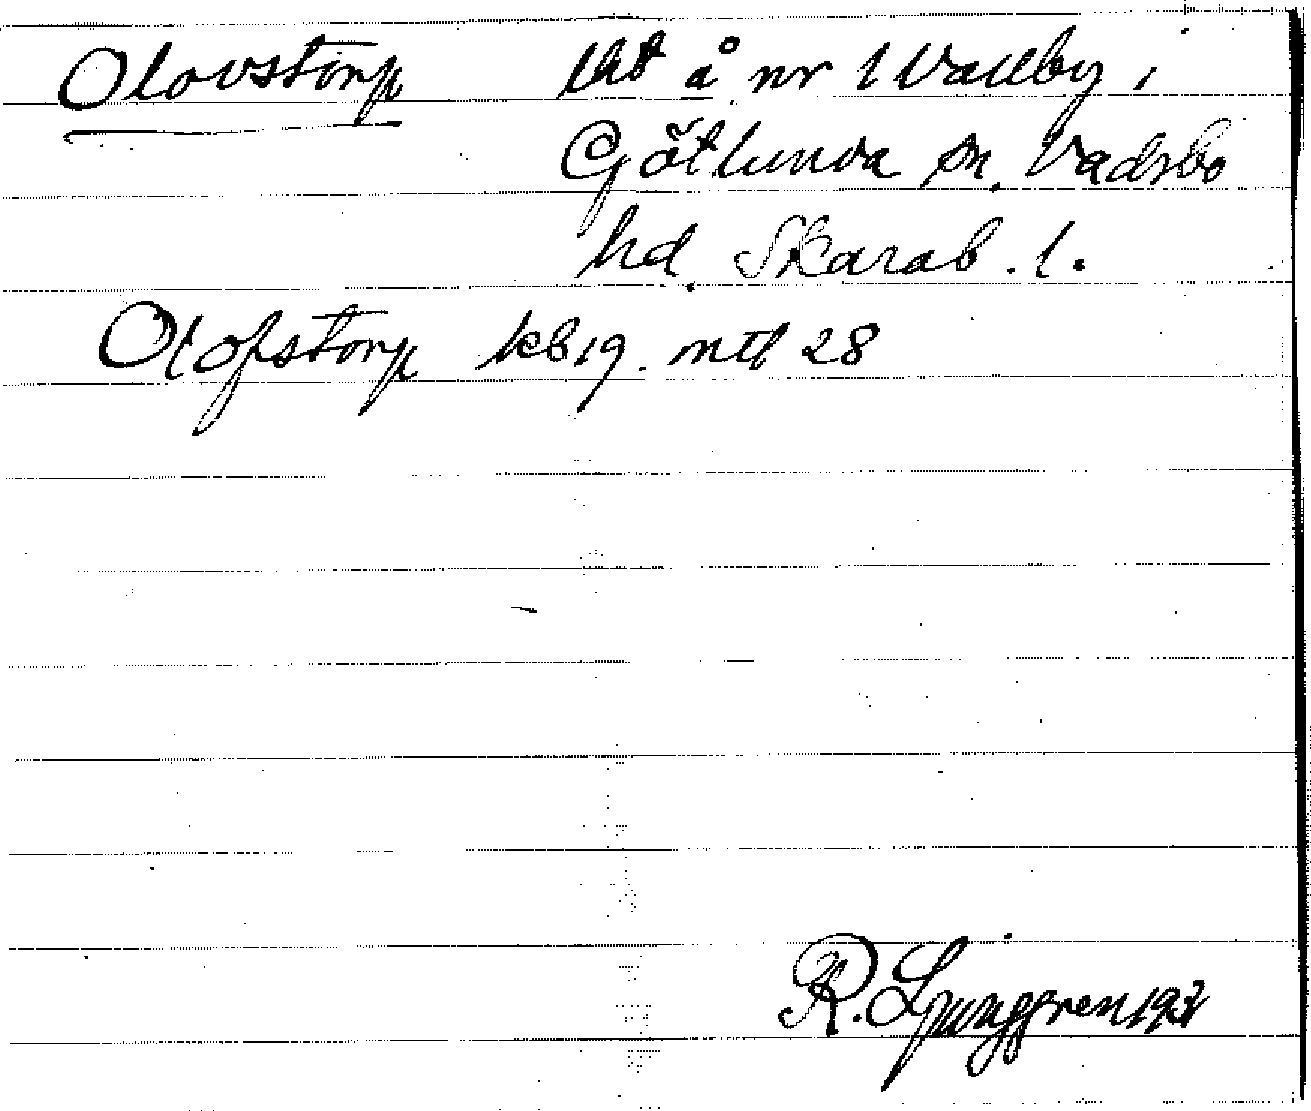 Olovstorp lht å nr 1 Vallby i
Götlunda sn. Vadsbo
hd. Skarab. l.
Olofstorp kb 19. mtl 28
R. Ljunggren